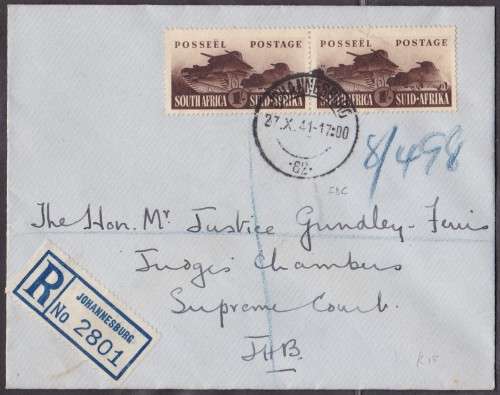 POSSEËL POSTAGE POSSEËL POSTAGE
SOUTH AFRICA 1/- SUID-AFRIKA SOUTH AFRICA 1/- SUID-AFRIKA
JOHANNESBURG
27.X.41-17:00
·62·
8/498
The Hon. Mr Justice Gundley-Ferris
Judges Chambers
Supreme Court.
JHB.
R
JOHANNESBURG
No 2801